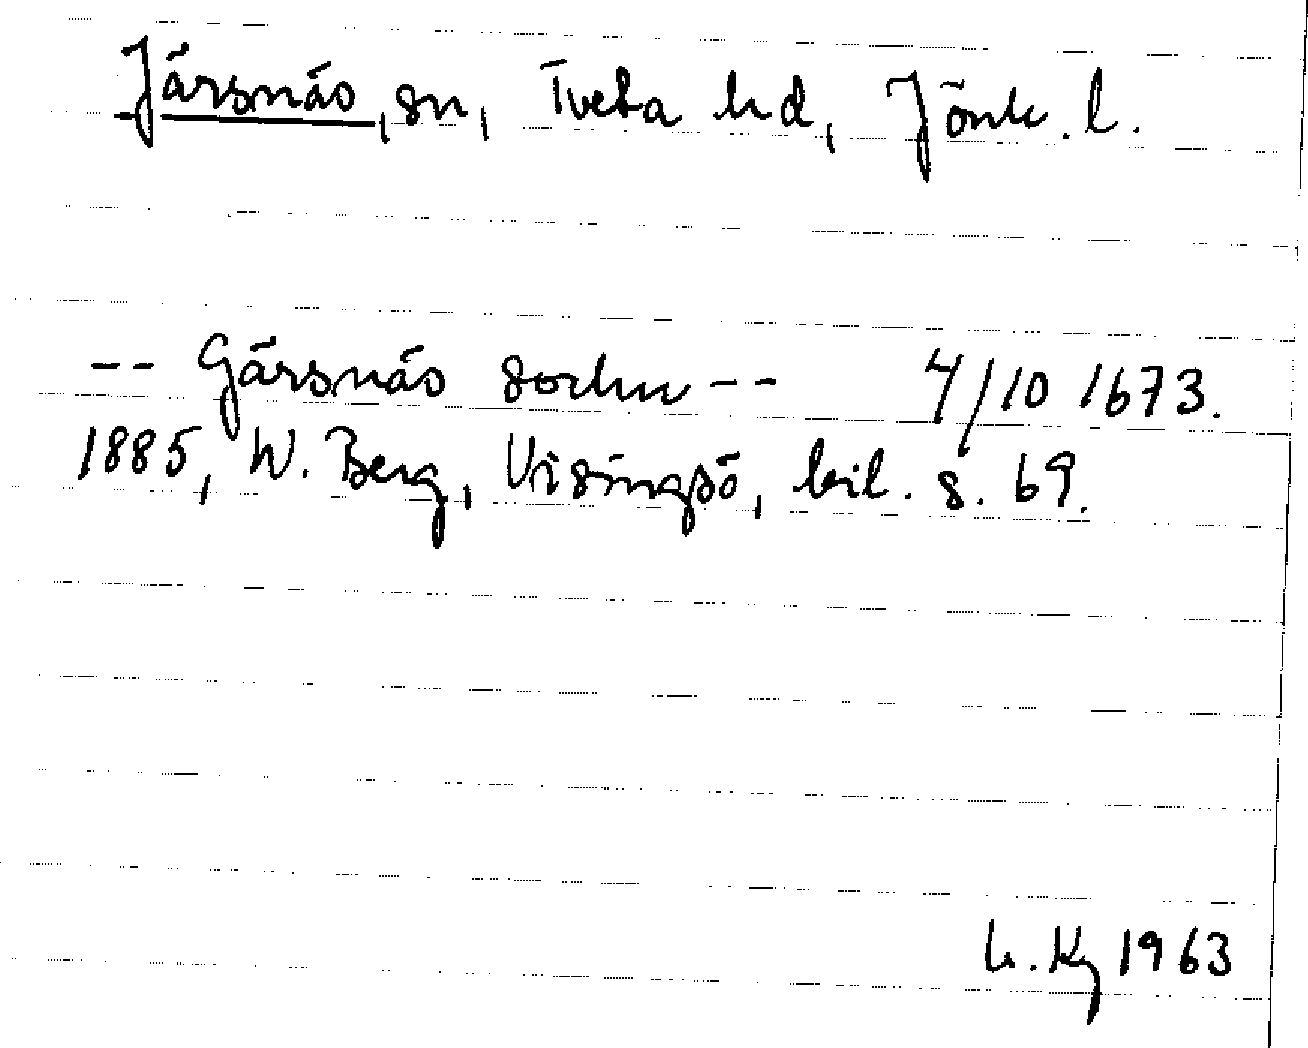 Järsnäs, sn, Tveta hd, Jönk. l.
-- Gärsnäs sochn -- 4/10 1673.
1885, W. Berg, Visingsö, bil. s. 69.
1963